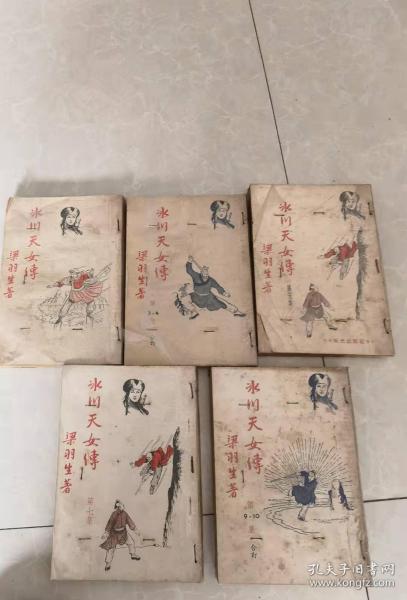 冰川天女傳
梁羽生著
冰川天女傳
梁羽生著
3-4
冰川天女傳
梁羽生著
冰川天女傳
梁羽生著
第七集
冰川天女傳
梁羽生著
9-10
合訂
孔夫子旧书网
www.kongfz.com